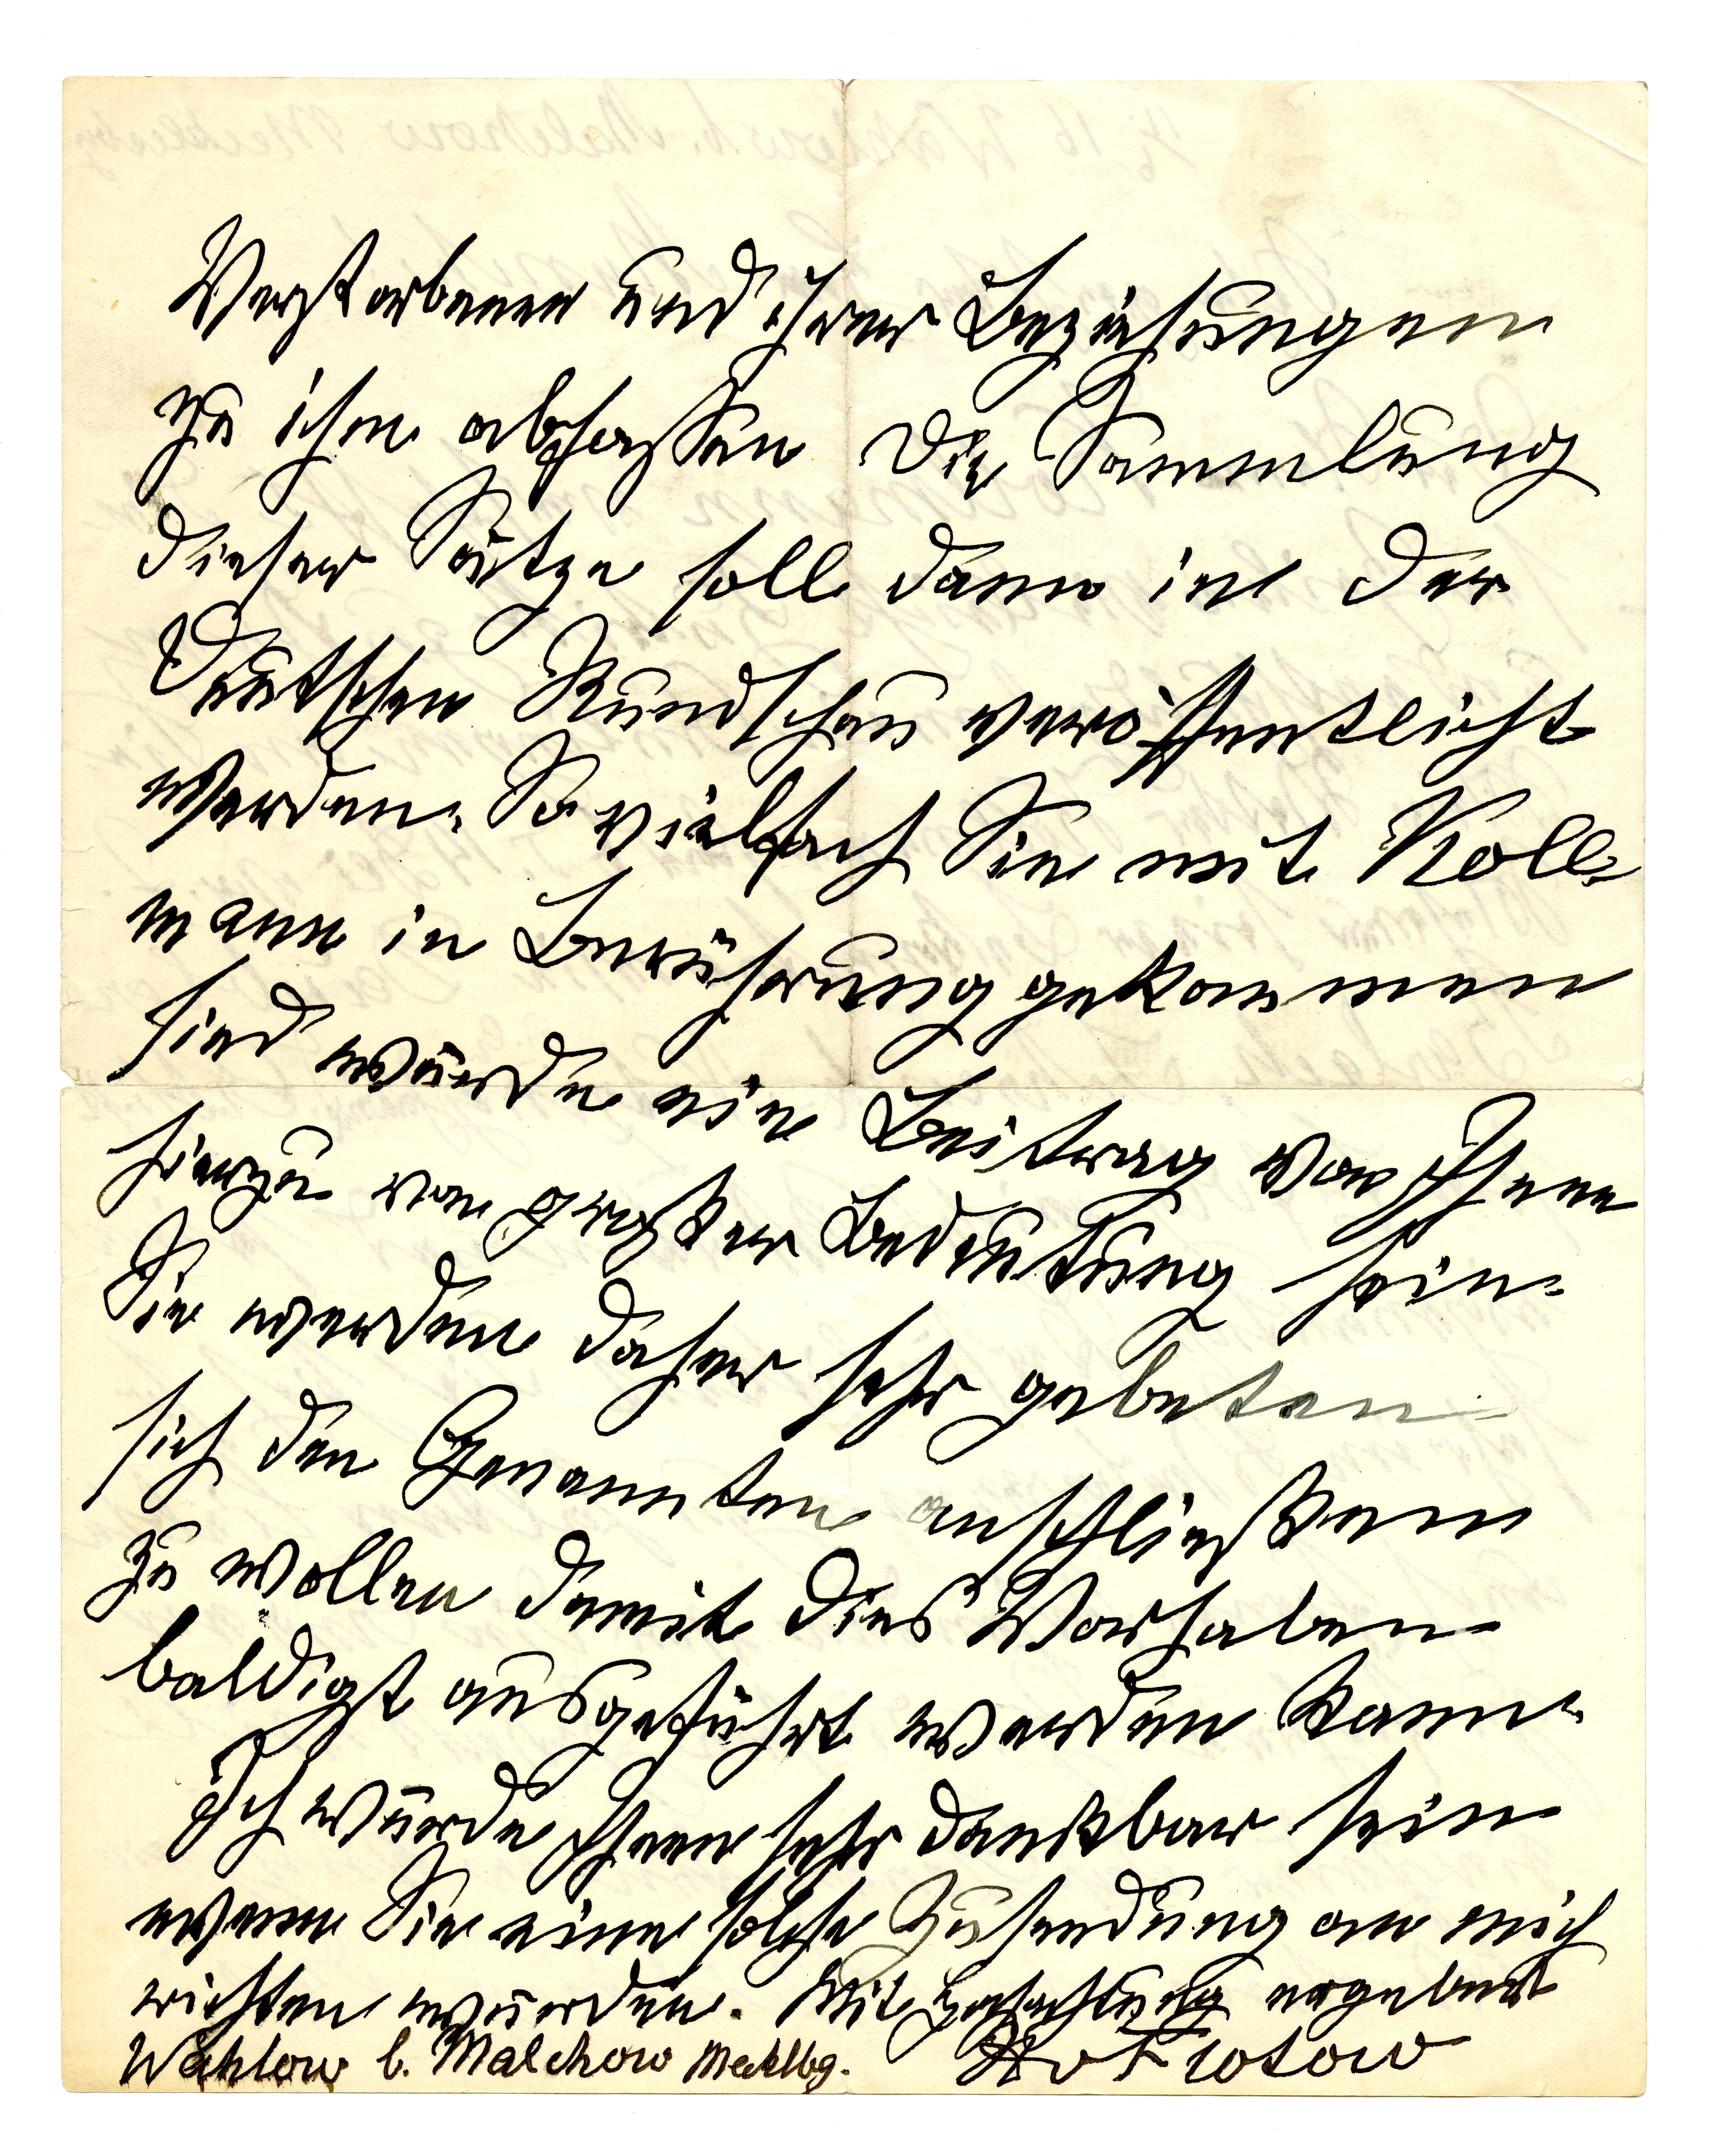 Verstorbenen und ihrer Beziehungen
zu ihm abfassen. Die Sammlung
dieser Sätze soll dann in der
Deutschen Rundschau veröffentlicht
werden. So vielfach Sie mit Koll-
mann in Berührung gekommen
sind würde ein Beitrag von Ihnen
hierzu von großer Bedeutung sein.
Sie werden daher sehr gebeten
sich den Genannten anschließen
zu wollen damit dies Vorhaben
baldigst ausgeführt werden kann.
Ich würde Ihnen sehr dankbar sein
wenn Sie eine solche Zusendung an mich
richten würden. Mit Hochachtung ergebenst
Wahlow b. Malchow Mecklbg. v Flotow